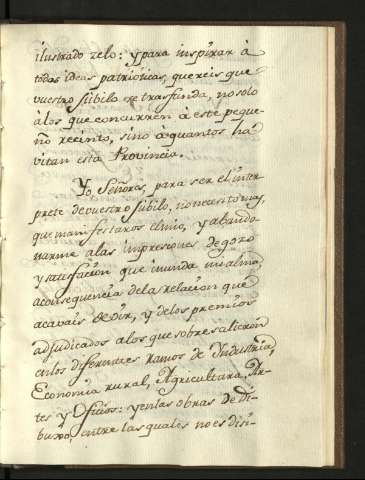 ilustrado zelo: y para inspirar à
todos ideas patrioticas, quereis que
vuestro júbilo se trasfunda, no solo
à los que concurren à este peque-
ño recinto, sino à quantos ha-
vitan esta Provincia.
Yo, Señores, para ser el inter-
prete de vuestro júbilo, no necesito mas,
que manifestaros el mio, y abando-
narme a las impresiones de gozo
y satisfacion que inunda mi alma,
a consequencia de la relacion que
acavais de oir, y de los premios
adjudicados a los que sobresalieron
en los diferentes ramos de Industria,
Economia rural, Agricultura, Ar-
tes y Oficios: y en las obras de Di-
buxo, entre las quales no es disi-